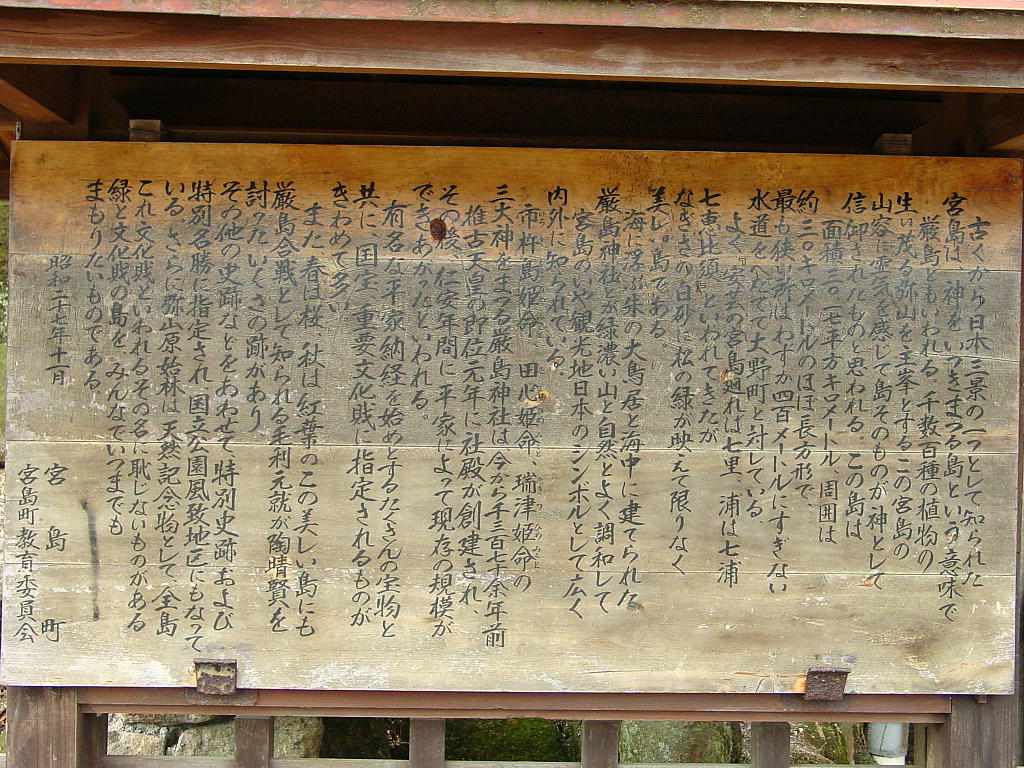 古くから日本三景の一つとして知られた
宮島は、神をいつきまつる島という意味で
厳島ともいわれる。千数百種の植物の
生い茂る弥山を主峯とするこの宮島の
山容に霊気を感じて島そのものが神として
信仰されたものと思われる。この島は
面積三〇・一七平方キロメートル、周囲は
約三〇キロメートルのほぼ長方形で、
最も狭い所はわずか四百メートルにすぎない
水道をへだてて大野町と対している。
よく「安芸の宮島廻れば七里、浦は七浦
七恵比須」といわれてきたが
なぎさの白砂に松の緑が映えて限りなく
美しい島である。
海に浮ぶ朱の大鳥居と海中に建てられた
厳島神社とが緑濃い山と自然とよく調和して
宮島のいや観光地日本のシンボルとして広く
内外に知られている。
市杵島姫命、田心姫命、瑞津姫命の
三大神をまつる厳島神社は今から千三百七十余年前
推古天皇の即位元年に社殿が創建され、
その後、仁安年間に平家によって現存の規模が
できあがったといわれる。
有名な平家納経を始めとするたくさんの宝物と
共に 国宝、重要文化財に指定されるものが
きわめて多い。
また、春は桜、秋は紅葉のこの美しい島にも
厳島合戦として知られる毛利元就が陶晴賢を
討ったいくさの跡があり
その他の史跡などをあわせて、特別史跡および
特別名勝に指定され、国立公園風致地区にもなって
いる。さらに弥山原始林は天然記念物として、全島
これ文化財といわれるその名に恥じないものがある
緑と文化財の島を みんなでいつまでも
まもりたいものである。
昭和二十七年十一月
宮島町
宮島町教育委員会